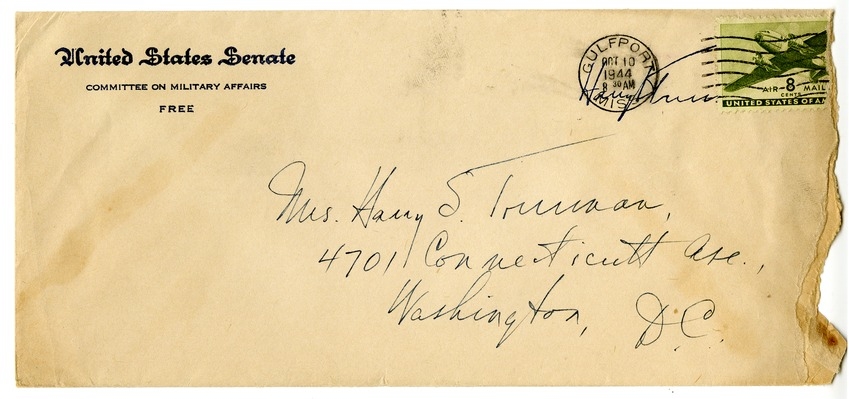 United States Senate
COMMITTEE ON MILITARY AFFAIRS
FREE
GULFPORT
OCT 10
1944
8 30 AM
MISS
Harry Trum
AIR 8 MAIL
CENTS
UNITED STATES OF AM
Mrs. Harry S. Truman,
4701 Connecticutt Ave.,
Washington, D.C.